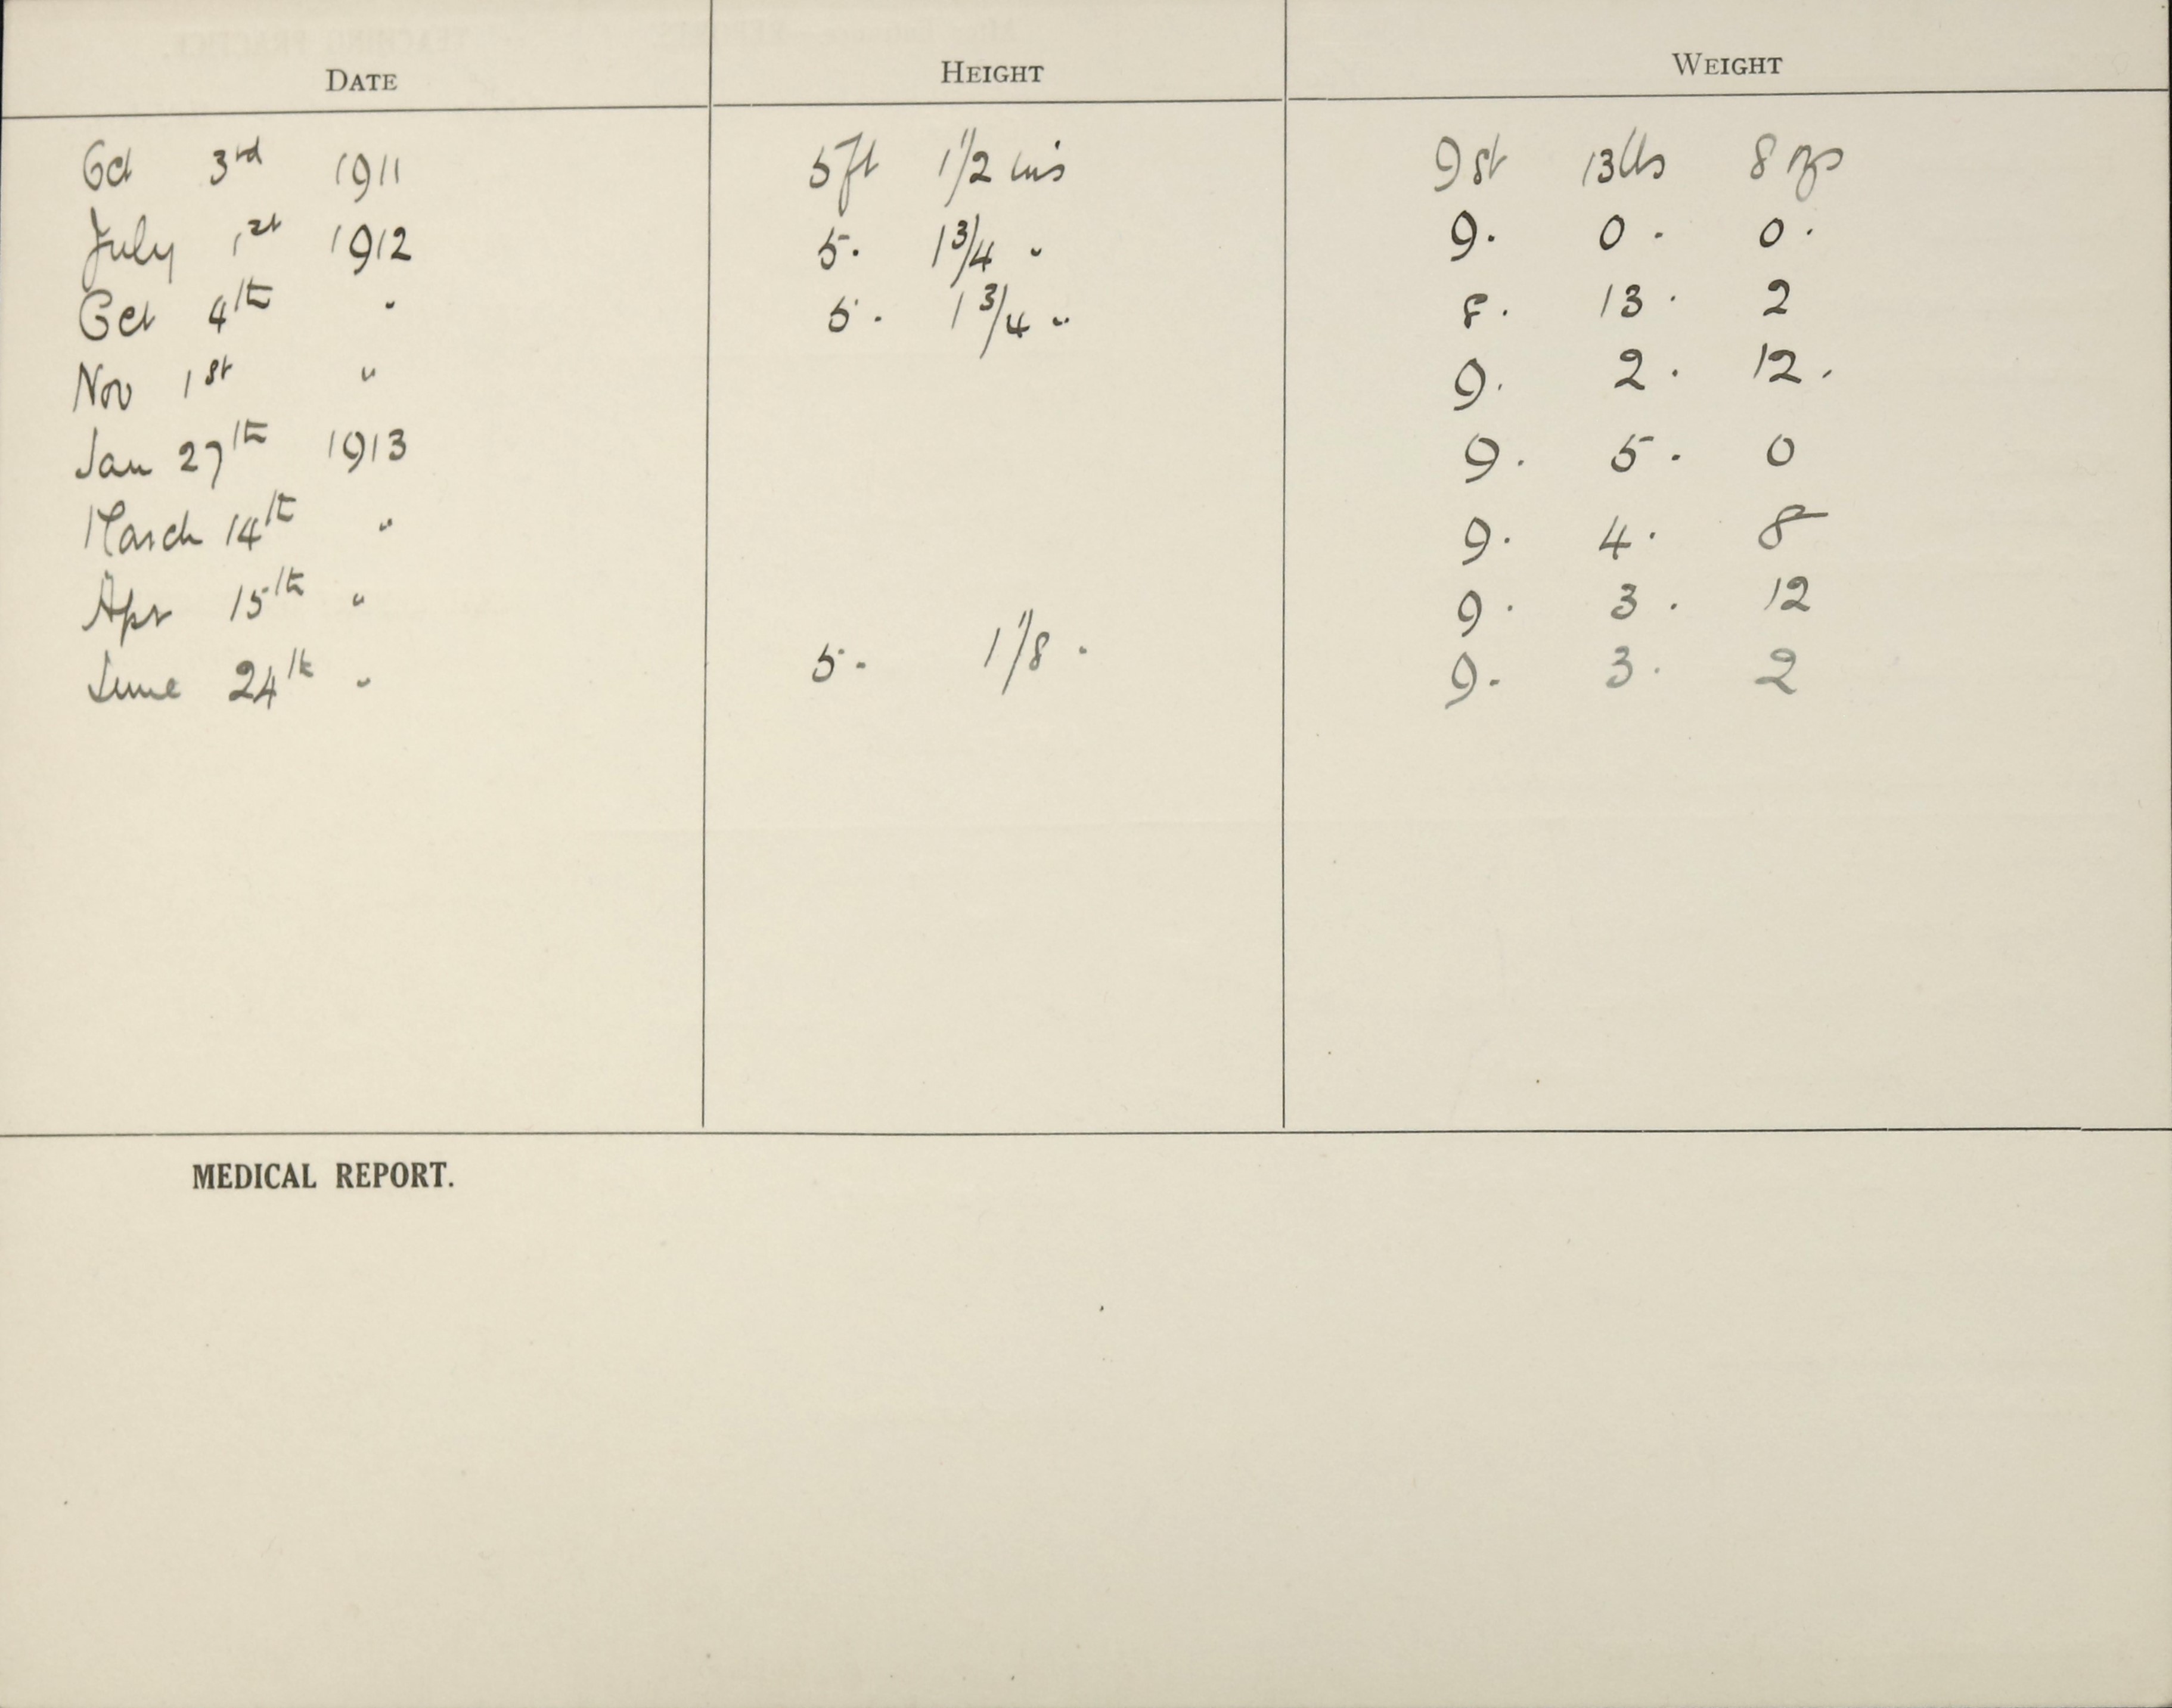 DATE HEIGHT WEIGHT
Oct 3rd 1911 5ft 1 1/2 ins 9st 13lbs 8ozs
July 1st 1912 5. 1 3/4 " 9. 0. 0.
Oct 4th " 5. 1 3/4 " 8. 13. 2
Nov 1st " 9. 2. 12.
Jan 27th 1913 9. 5. 0
March 14th " 9. 4. 8
Apr 15th " 9. 3. 12
June 24th " 5. 1 1/8. 9. 3. 2
MEDICAL REPORT.